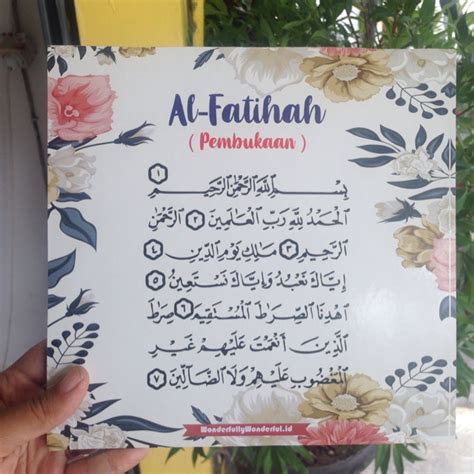 Al-Fatihah
( Pembukaan )
١
بِسْمِ اللَّهِ الرَّحْمَٰنِ الرَّحِيمِ
الْحَمْدُ لِلَّهِ رَبِّ الْعَالَمِينَ ٢ الرَّحْمَٰنِ
الرَّحِيمِ ٣ مَالِكِ يَوْمِ الدِّينِ ٤
إِيَّاكَ نَعْبُدُ وَإِيَّاكَ نَسْتَعِينُ ٥
اهْدِنَا الصِّرَاطَ الْمُسْتَقِيمَ ٦ صِرَاطَ
الَّذِينَ أَنْعَمْتَ عَلَيْهِمْ غَيْرِ
الْمَغْضُوبِ عَلَيْهِمْ وَلَا الضَّالِّينَ ٧
WonderfullyWonderful.id